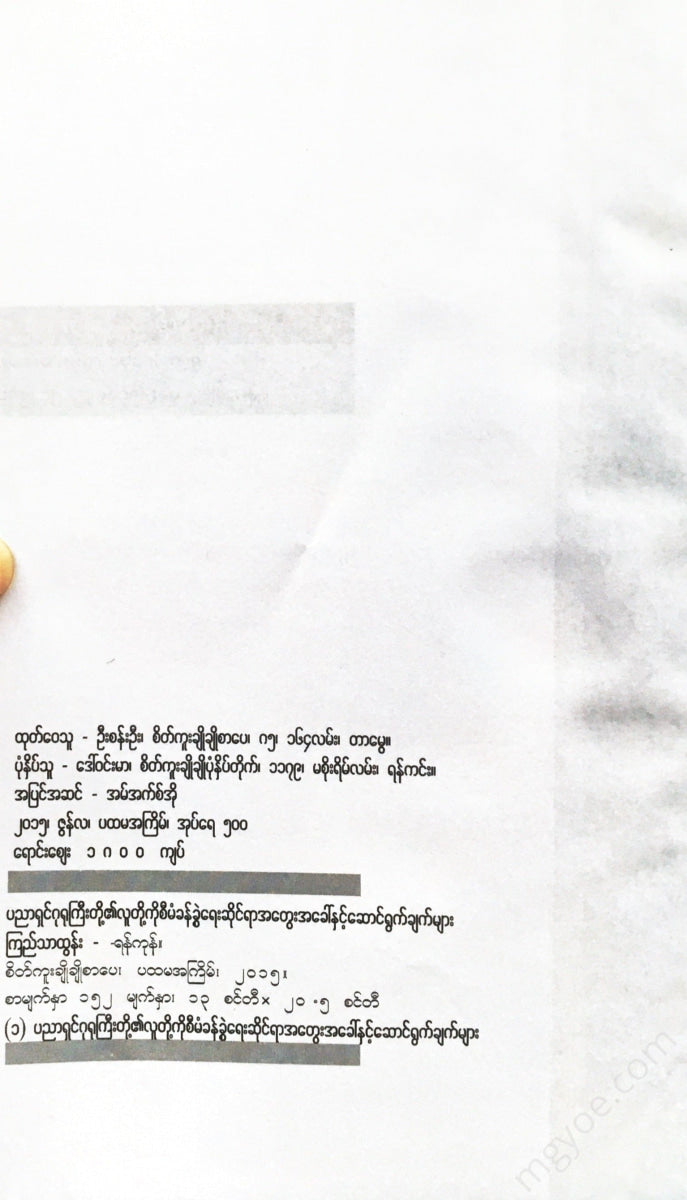 ထုတ်ဝေသူ - ဦးစန်းဦး၊ စိတ်ကူးချိုချိုစာပေ၊ ဂ၅၊ ၁၆၄လမ်း၊ တာမွေ။
ပုံနှိပ်သူ - ဒေါ်ဝင်းမာ၊ စိတ်ကူးချိုချိုပုံနှိပ်တိုက်၊ ၁၁၇၉၊ မစိုးရိမ်လမ်း၊ ရန်ကင်း။
အပြင်အဆင် - အမ်အက်စ်အို
၂၀၁၅၊ ဇွန်လ၊ ပထမအကြိမ်၊ အုပ်ရေ ၅၀၀
ရောင်းဈေး ၁ ဂ ၀ ၀ ကျပ်
ပညာရှင်ဂုရုကြီးတို့၏လူတို့ကိုစီမံခန့်ခွဲရေးဆိုင်ရာအတွေးအခေါ်နှင့်ဆောင်ရွက်ချက်များ
ကြည်သာထွန်း - ရန်ကုန်။
စိတ်ကူးချိုချိုစာပေ၊ ပထမအကြိမ်၊ ၂၀၁၅။
စာမျက်နှာ ၁၅၂ မျက်နှာ၊ ၁၃ စင်တီ× ၂၀ .၅ စင်တီ
(၁) ပညာရှင်ဂုရုကြီးတို့၏လူတို့ကိုစီမံခန့်ခွဲရေးဆိုင်ရာအတွေးအခေါ်နှင့်ဆောင်ရွက်ချက်များ
mgyoe.com